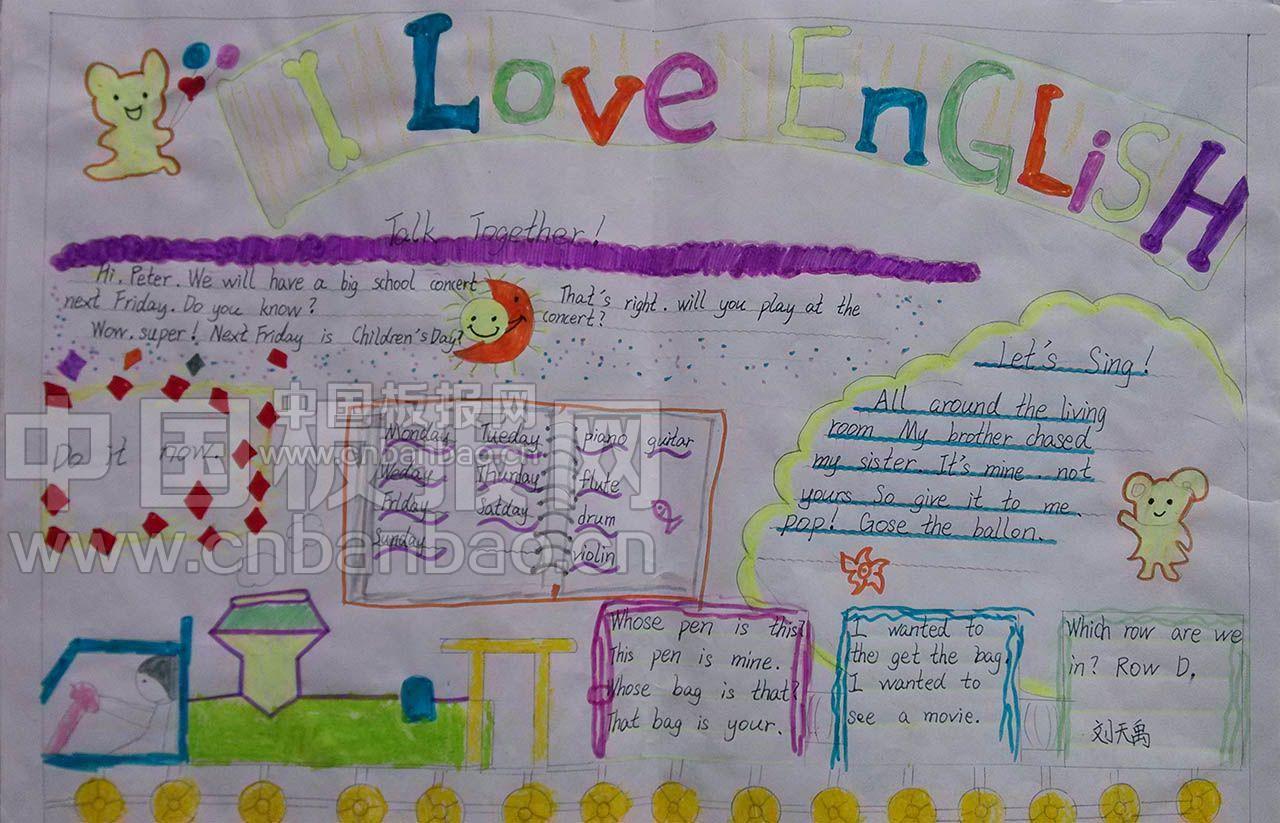 I Love EnGLiSH
Talk Together!
Hi, Peter. We will have a big school concert
next Friday. Do you know?
Wow, super! Next Friday is Children's Day?
That's right. will you play at the
concert?
Let's Sing!
All around the living
room My brother chased
my sister. It's mine. not
yours. So give it to me.
pop! Gose the ballon.
Do it now.
Monday Tueday
Weday Thurday
Friday Satday
Sunday
piano guitar
flute
drum
violin
中国板报网
www.cnbanbao.cn
中国板报网
www.cnbanbao.cn
Whose pen is this?
This pen is mine.
Whose bag is that?
That bag is your.
I wanted to
the get the bag.
I wanted to
see a movie.
Which row are we
in? Row D,
刘天禹